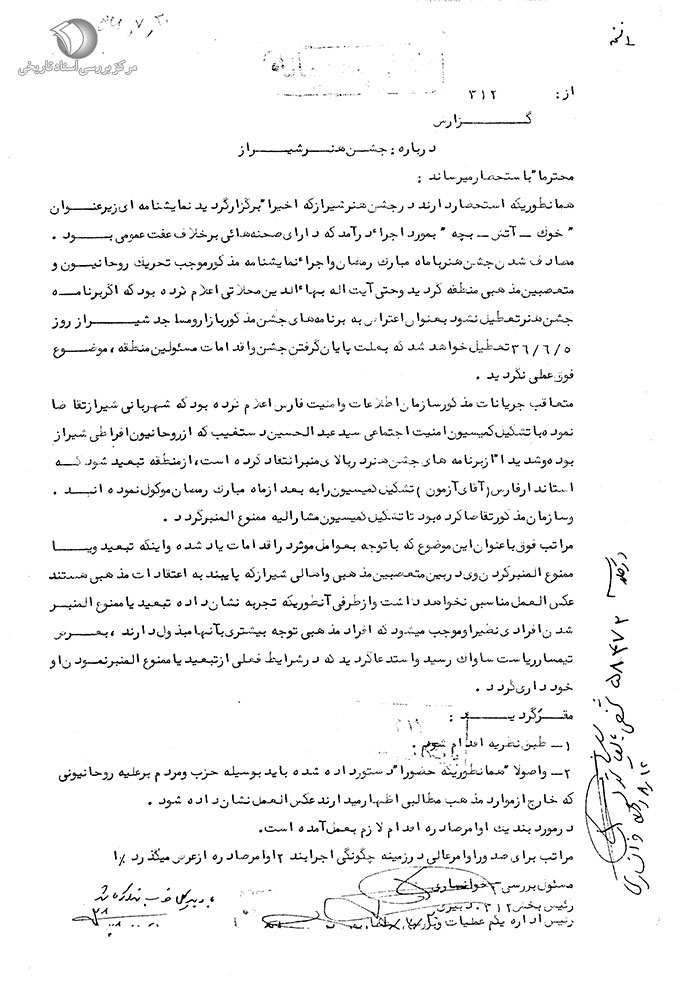 مرکز بررسی اسناد تاریخی
از : ۳۱۲
گـــزارس
درباره : جشن هنر شیراز
محترما" باستحضار میرساند :
همانطوریکه استحضار دارند در جشن هنر شیراز که اخیرا" برگزار گردید نمایشنامه ای زیر عنوان
" خوك ــ آتش ــ بچه " بمورد اجراء درآمد که دارای صحنه هائی برخلاف عفت عمومی بود .
مصادف شدن جشن هنر با ماه مبارك رمضان و اجراء نمایشنامه مذکور موجب تحریك روحانیون و
متعصبین مذهبی منطقه گردید و حتی آیت اله بهاءالدین محلاتی اعلام کرده بود که اگر برنامه
جشن هنر تعطیل نشود بعنوان اعتراض به برنامه های جشن مذکور بازار و مساجد شیراز روز
۳۶/۶/۵ تعطیل خواهد شد که بعلت پایان گرفتن جشن و اقدامات مسئولین منطقه ، موضوع
فوق عملی نگردید .
متعاقب جریانات مذکور سازمان اطلاعات و امنیت فارس اعلام کرده بود که شهربانی شیراز تقاضا
نموده با تشکیل کمیسیون امنیت اجتماعی سید عبدالحسین دستغیب که از روحانیون افراطی شیراز
بوده و شدیدا" از برنامه های جشن هنر در بالای منبر انتقاد کرده است ، از منطقه تبعید شود که
استاندار فارس (آقای آزمون ) تشکیل کمیسیون را به بعد از ماه مبارك رمضان موکول نموده اند .
و سازمان مذکور تقاضا کرده بود تا تشکیل کمیسیون مشارالیه ممنوع المنبر گردد .
مراتب فوق با عنوان این موضوع که با توجه بعوامل موثر در اقدامات یاد شده و اینکه تبعید و یا
ممنوع المنبر کردن وی در بین متعصبین مذهبی و اهالی شیراز که پایبند به اعتقادات مذهبی هستند
عکس العمل مناسبی نخواهد داشت و از طرفی آنطوریکه تجربه نشان داده تبعید یا ممنوع المنبر
شدن افرادی نظیر او موجب میشود که افراد مذهبی توجه بیشتری بآنها مبذول دارند ، بعرض
تیمسار ریاست ساواك رسید و استدعا گردید که در شرایط فعلی از تبعید یا ممنوع المنبر نمودن او
خودداری گردد .
مقرر گردید :
۱ــ طبق نظریه اقدام شود .
۲ــ و اصولا" همانطوریکه حضورا" دستور داده شده باید بوسیله حزب و مردم بر علیه روحانیونی
که خارج از موارد مذهب مطالبی اظهار میدارند عکس العمل نشان داده شود .
در مورد بند یك اوامر صادره اقدام لازم بعمل آمده است.
مراتب برای صدور اوامر عالی در زمینه چگونگی اجرا بند ۲ اوامر صادره از عرض میگذرد
مسئول بررسی : خوانساری
رئیس بخش ۳۱۲ . دبیری
رئیس اداره یکم عملیات و بررسی
۵۸۴۷۲